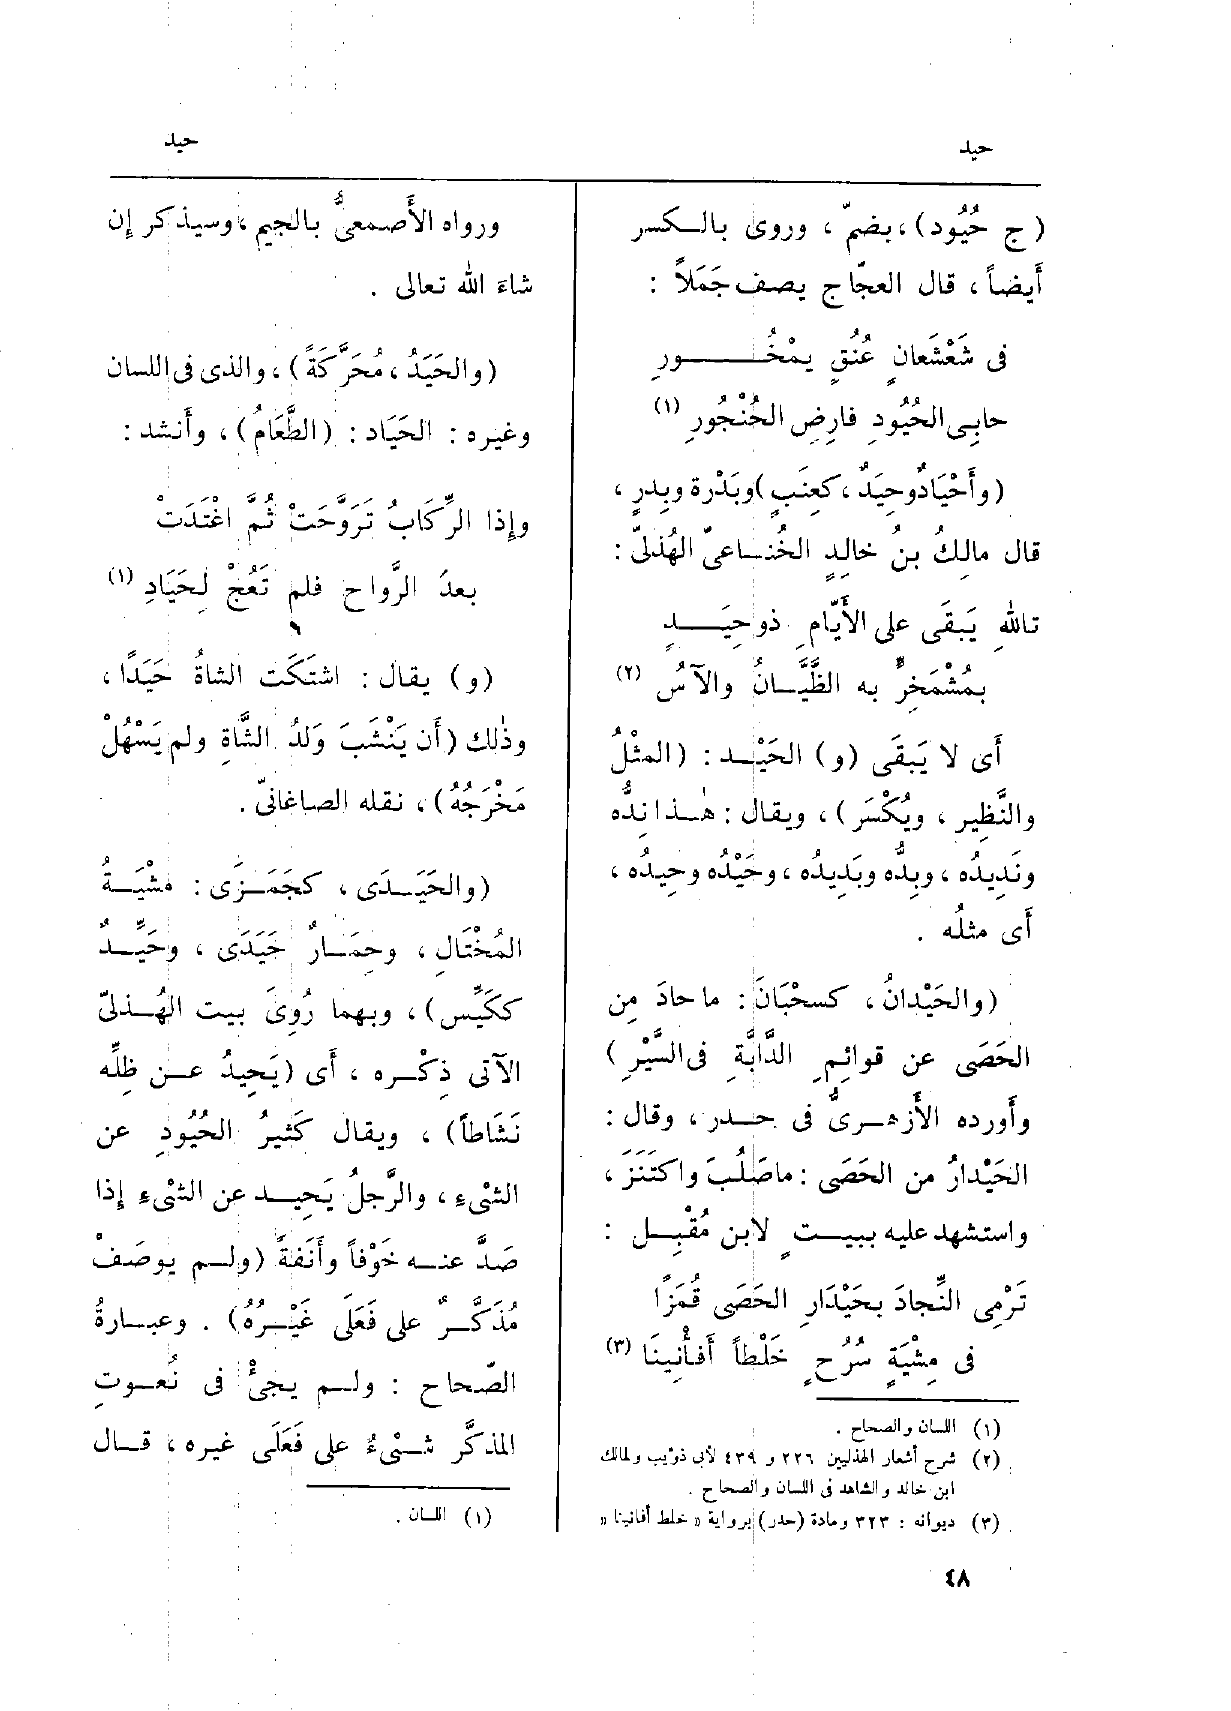 حيد
حيد
(ج حُيُود)، بضمّ، وروى بالكسر
أَيضاً، قال العجّاج يصف جَمَلاً :
فى شَعْشَعانٍ عُنُقٍ يمْخُورِ
حابِى الحُيُودِ فارِضِ الحُنْجُورِ (١)
(وأَحْيَادٌ وحِيَدٌ، كعِنَبٍ) وبَدْرة وبِدرٍ،
قال مالِكُ بنُ خالدٍ الخُناعىّ الهُذلىّ :
تاللهِ يَبقَى على الأَيّامِ ذو حِيَدٍ
بمُشْمَخِرٍّ به الظَّيّانُ والآسُ (٢)
أَى لا يَبقَى (و) الحَيْد : (المثْلُ
والنَّظِير، ويُكْسَر)، ويقال : هٰذا نِدُّه
ونَدِيدُه، وبِدُّه وبَدِيدُه، وحَيْدُه وحِيدُه،
أَى مثلُه .
(والحَيْدانُ، كسحْبَانَ : ما حادَ مِن
الحَصَى عن قوائِمِ الدَّابَّةِ فى السَّيْرِ)
وأَورده الأَزهرىُّ فى حدر، وقال :
الحَيْدارُ من الحَصَى : ما صَلُبَ واكتَنَزَ،
واستشهد عليه ببيتٍ لابن مُقْبِل :
تَرْمِى النِّجادَ بحَيْدَارِ الحَصَى قُمَزًا
فى مِشْيَةٍ سُرُحٍ خَلْطاً أَفانِينَا (٣)
(١) اللسان والصحاح .
(٢) شرح أشعار الهذليين ٢٢٦ و ٤٣٩ لأبى ذؤيب ولمالك
ابن خالد والشاهد فى اللسان والصحاح .
(٣) ديوانه : ٣٢٣ ومادة (حدر) برواية « خلط أفانينا »
ورواه الأَصمعىُّ بالجيم، وسيذكر إن
شاءَ الله تعالى .
(والحَيَدُ، مُحَرَّكَةً)، والذى فى اللسان
وغيره : الحَيَاد : (الطَّعَامُ)، وأَنشد :
وإِذا الرِّكَابُ تَرَوَّحَتْ ثُمَّ اغْتَدَتْ
بعدَ الرَّواحِ فلم تَعُجْ لِحَيَادِ (١)
(و) يقال : اشتَكَت الشاةُ حَيَدًا،
وذٰلك (أَن يَنْشَبَ وَلدُ الشَّاةِ ولم يَسْهُلْ
مَخْرَجُهُ)، نقله الصاغانىّ .
(والحَيَدَى، كجَمَزَى : مشْيَةُ
المُخْتَالِ، وحِمَارٌ حَيَدَى، وحَيِّدٌ
ككَيِّس)، وبهما رُوِىَ بيت الهُذلىّ
الآتى ذِكْره، أَى (يَحِيدُ عن ظِلِّه
نَشَاطاً)، ويقال كَثيرُ الحُيُودِ عن
الشىْءِ، والرَّجلُ يَحِيد عن الشىْءِ إذا
صَدَّ عنه خَوْفاً وأَنَفةً (ولم يوصَفْ
مُذَكَّرٌ على فَعَلَى غَيْرُهُ) . وعبارةُ
الصّحاح : ولم يجئْ فى نُعوتِ
المذكَّر شىْءٌ على فَعَلَى غيره، قال
(١) اللسان .
٤٨